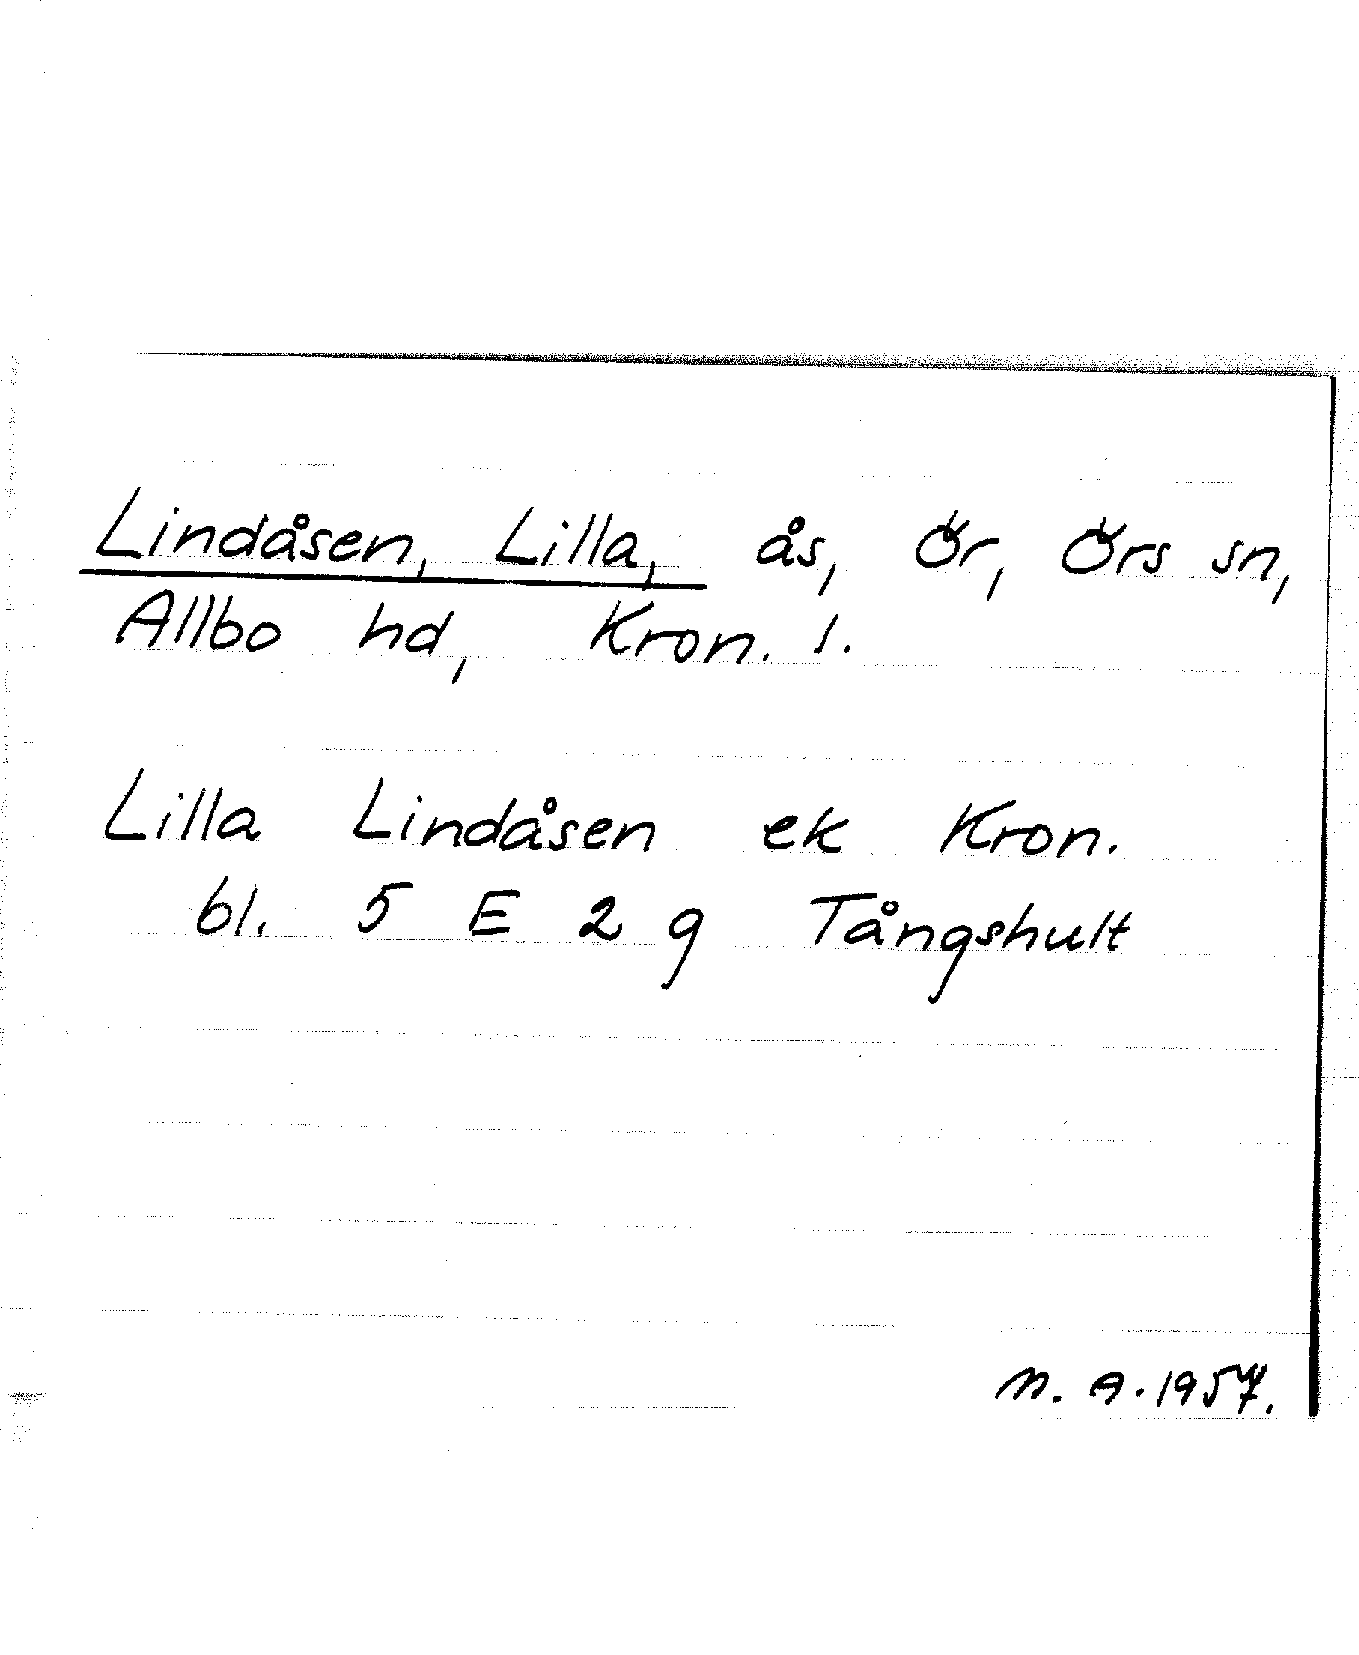 Lindåsen, Lilla, ås, Ör, Örs sn,
Allbo hd, Kron. l.
Lilla Lindåsen ek Kron.
bl. 5 E 2 g Tångshult
M. A. 1957.